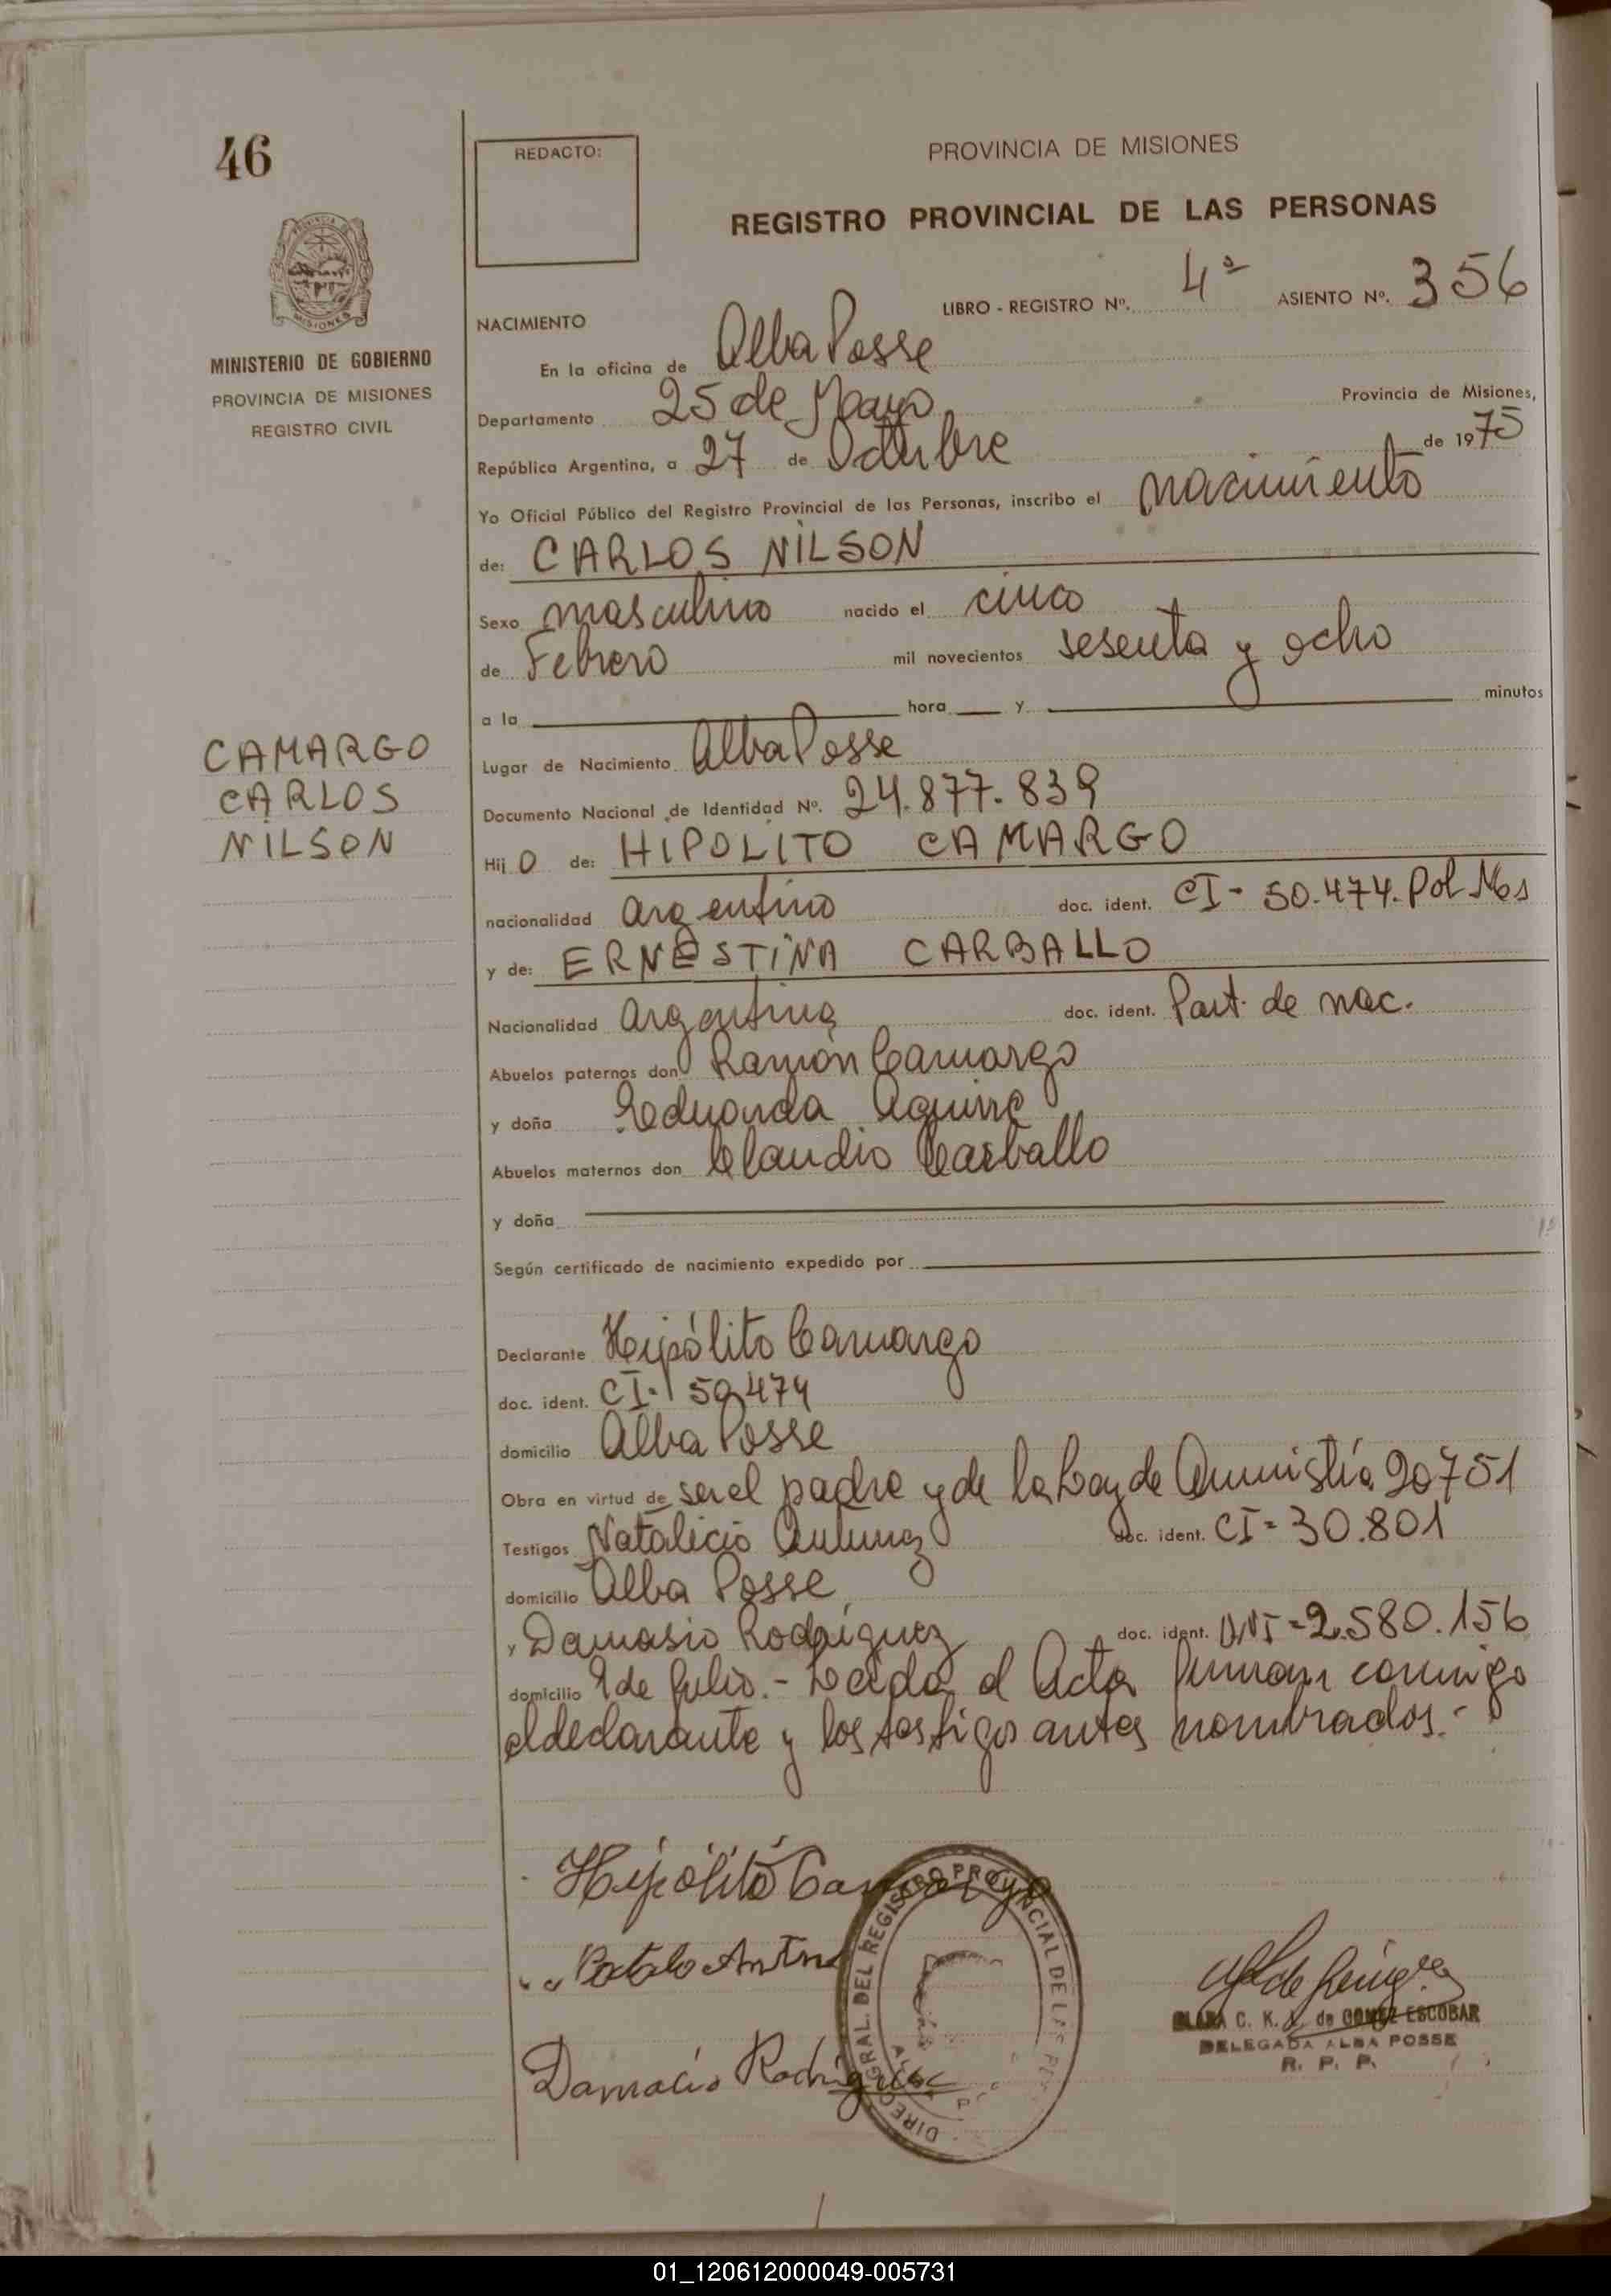 46
REDACTO:
PROVINCIA DE MISIONES
REGISTRO PROVINCIAL DE LAS PERSONAS
MINISTERIO DE GOBIERNO
PROVINCIA DE MISIONES
REGISTRO CIVIL
LIBRO - REGISTRO Nº. 4º ASIENTO Nº. 356
NACIMIENTO
En la oficina de Alba Posse
Departamento 25 de Mayo Provincia de Misiones,
República Argentina, a 27 de Octubre de 1975
Yo Oficial Público del Registro Provincial de las Personas, inscribo el nacimiento
de: CARLOS NILSON
Sexo masculino nacido el cinco
de Febrero mil novecientos sesenta y ocho
a la hora y minutos
CAMARGO
CARLOS
NILSON
Lugar de Nacimiento Alba Posse
Documento Nacional de Identidad Nº. 24.877.839
Hij O de: HIPOLITO CAMARGO
nacionalidad argentino doc. ident. CI - 50.474. Pol Mes
y de: ERNESTINA CARBALLO
Nacionalidad argentina doc. ident. Part. de nac.
Abuelos paternos don Ramón Camargo
y doña Eduarda Aguirre
Abuelos maternos don Claudio Carballo
y doña
Según certificado de nacimiento expedido por
Declarante Hipólito Camargo
doc. ident. CI - 50.474
domicilio Alba Posse
Obra en virtud de ser el padre y de la Ley de Amnistía 20751
Testigos Natalicio doc. ident. CI = 30.801
domicilio Alba Posse
y Damasio Rodríguez doc. ident. DNI = 2.580.156
domicilio 9 de Julio.- Leida el Acta firman conmigo
el declarante y los testigos antes nombrados.-
Hipólito Camargo
Damacio Rodriguez
DIREC. GRAL. DEL REGISTRO PROVINCIAL DE LAS PER
C. K. de GOMEZ ESCOBAR
DELEGADA ALBA POSSE
R. P. P.
01_120612000049-005731